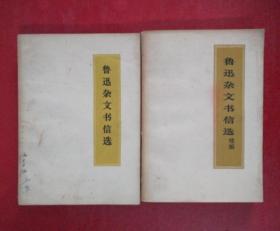 鲁迅杂文书信选
鲁迅杂文书信选
续编